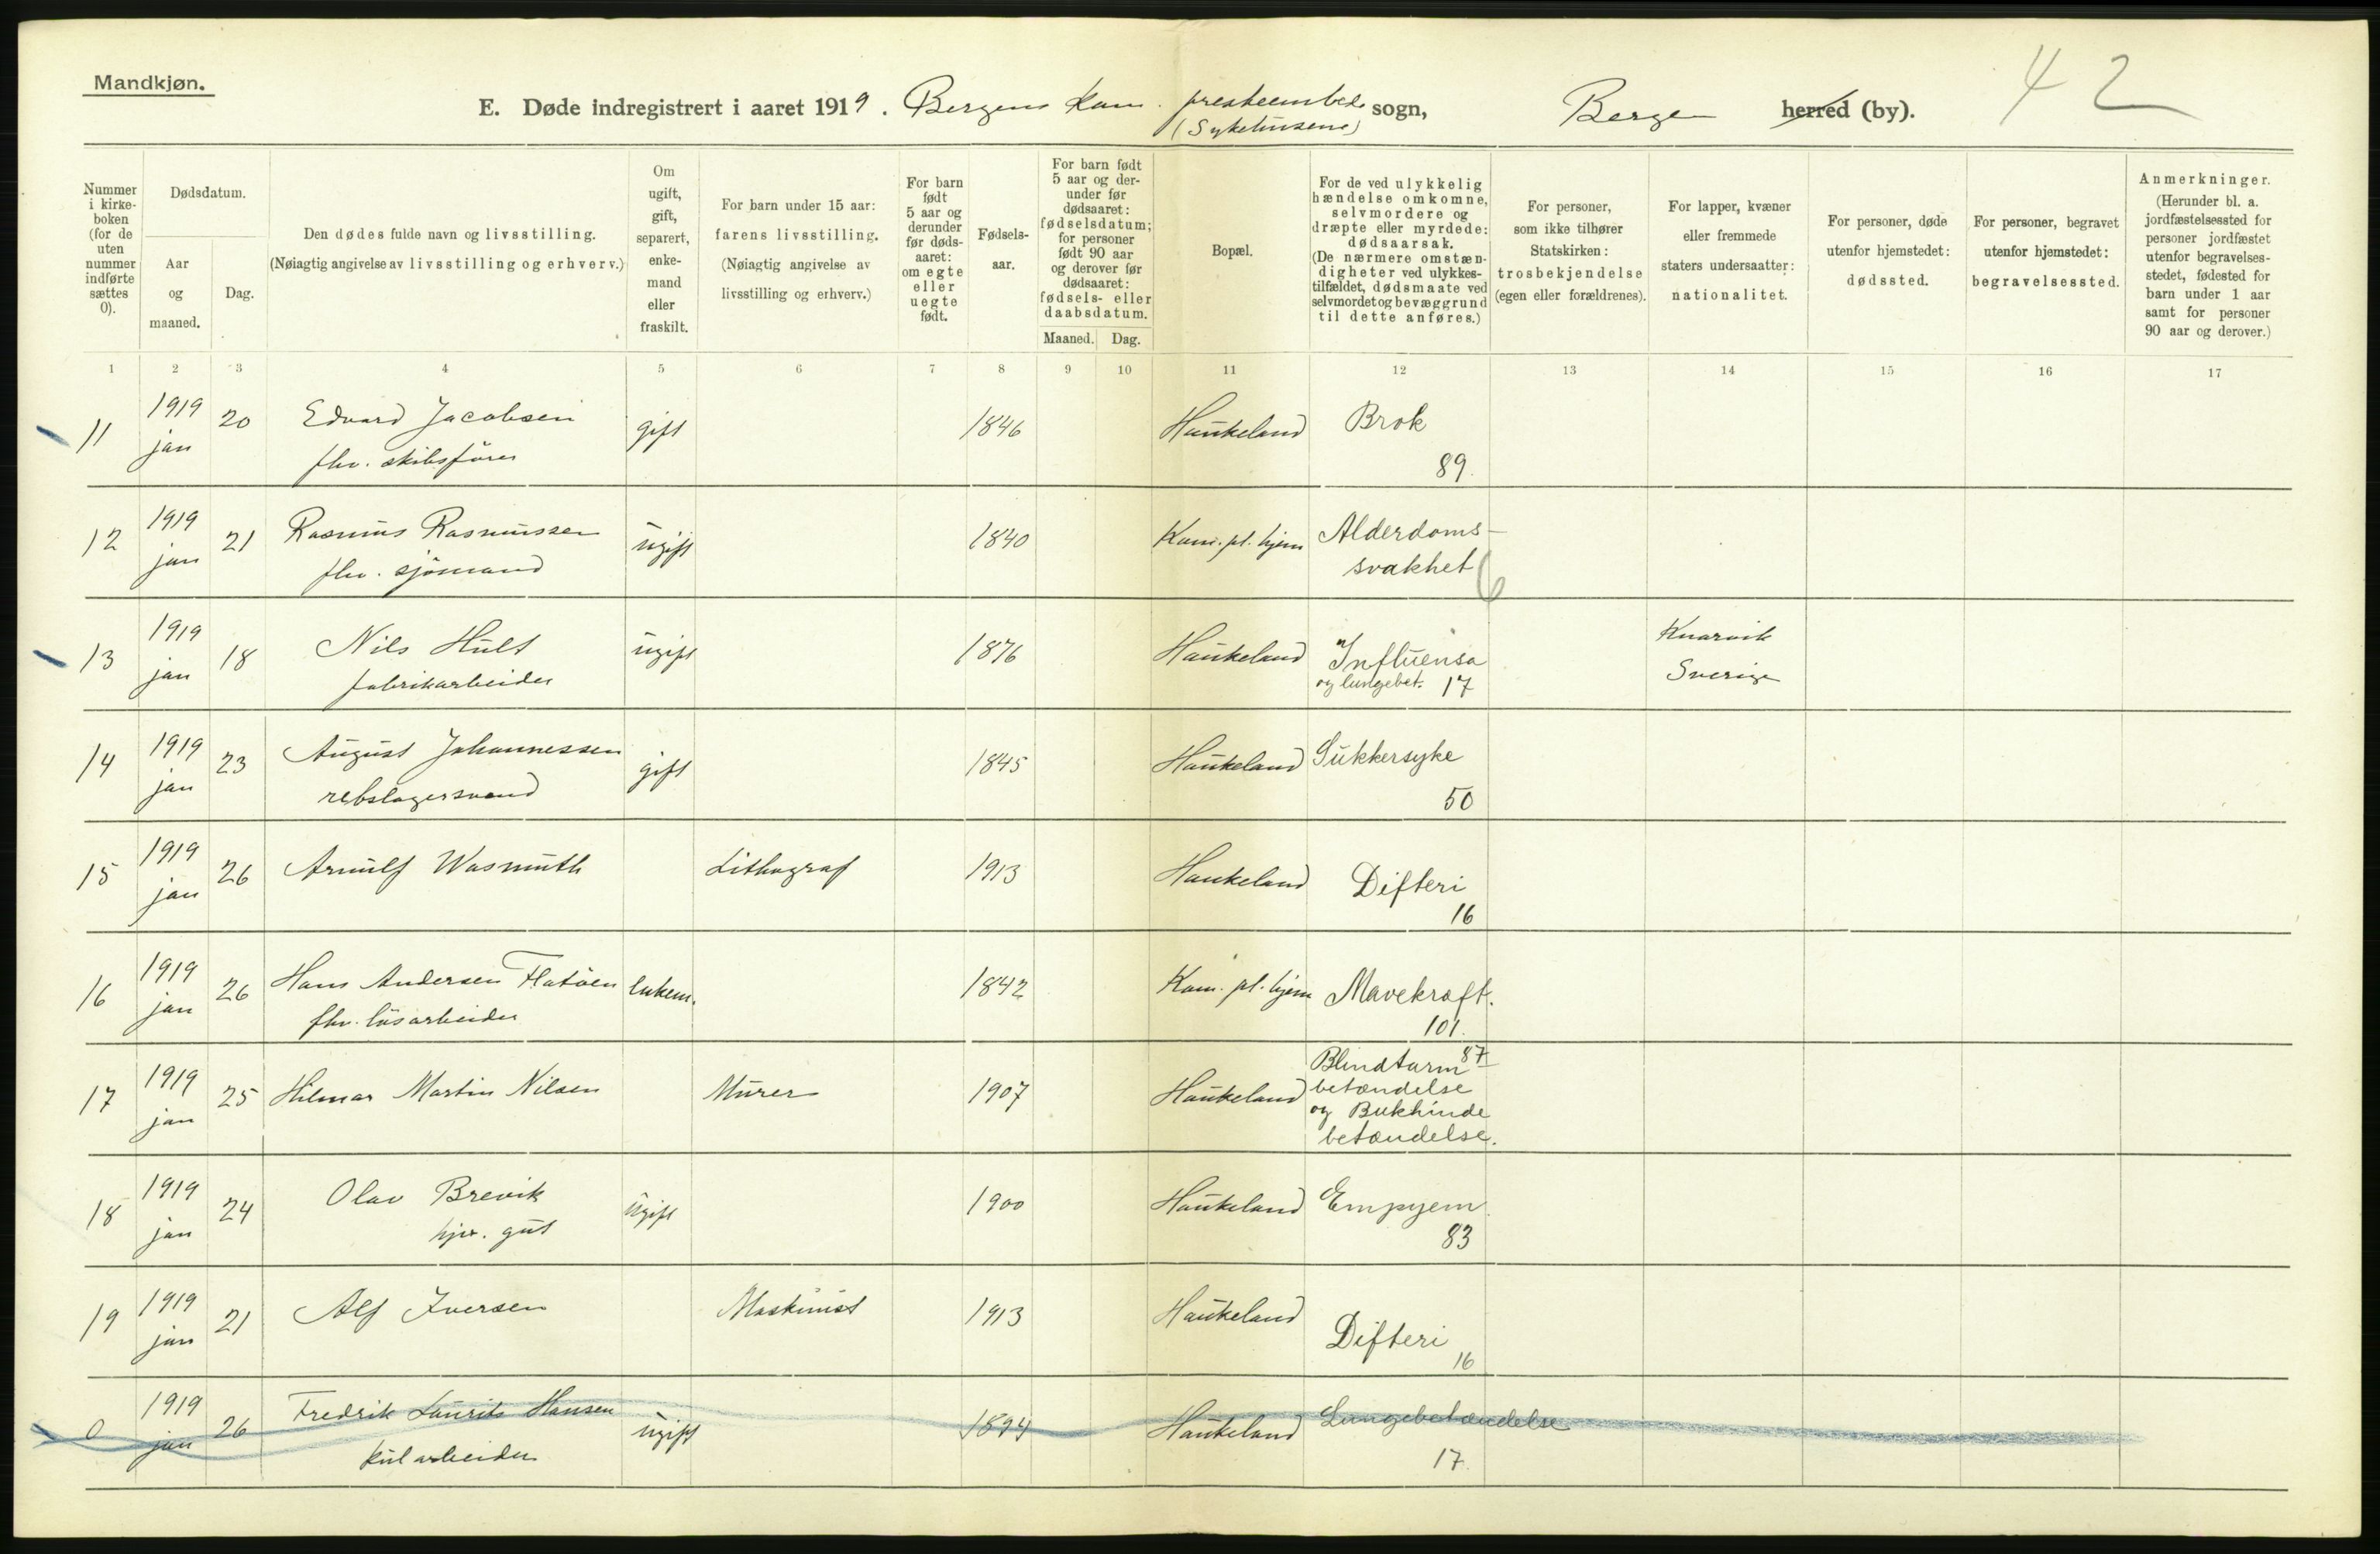 Mandkjøn.
E. Døde indregistrert i aaret 1919. Bergens Kom. presteembede sogn, Bergen herred (by). 42
(Sykehusene)
Nummer i kirkeboken (for de uten nummer indførte sættes 0).
Dødsdatum.
Aar og maaned.
Dag.
Den dødes fulde navn og livsstilling.
(Nøiagtig angivelse av livsstilling og erhverv.)
Om ugift, gift, separert, enkemand eller fraskilt.
For barn under 15 aar:
farens livsstilling.
(Nøiagtig angivelse av livsstilling og erhverv.)
For barn født 5 aar og derunder før dødsaaret: om egte eller uegte født.
Fødselsaar.
For barn født 5 aar og derunder før dødsaaret: fødselsdatum; for personer født 90 aar og derover før dødsaaret: fødsels- eller daabsdatum.
Maaned. Dag.
Bopæl.
For de ved ulykkelig hændelse omkomne, selvmordere og dræpte eller myrdede: dødsaarsak.
(De nærmere omstændigheter ved ulykkestilfældet, dødsmaate ved selvmordet og bevæggrund til dette anføres.)
For personer, som ikke tilhører Statskirken: trosbekjendelse (egen eller forældrenes).
For lapper, kvæner eller fremmede staters undersaatter: nationalitet.
For personer, døde utenfor hjemstedet: dødssted.
For personer, begravet utenfor hjemstedet: begravelsessted.
Anmerkninger.
(Herunder bl. a. jordfæstelsessted for personer jordfæstet utenfor begravelsesstedet, fødested for barn under 1 aar samt for personer 90 aar og derover.)
1 2 3 4 5 6 7 8 9 10 11 12 13 14 15 16 17
11 1919 jan 20 Edvard Jacobsen gift 1846 Haukeland Brok
fhv. skibsfører 89.
12 1919 jan 21 Rasmus Rasmussen ugift 1840 Kom. pl. hjem Alderdoms-
fhv. sjømand svakhet 6
13 1919 jan 18 Nils Hult ugift 1876 Haukeland Influensa Knarvik
fabrikarbeider og lungebet. 17 Sverige
14 1919 jan 23 August Johannessen gift 1845 Haukeland Sukkersyke
rebslagersvend 50
15 1919 jan 26 Arnulf Wasmuth Lithograf 1913 Haukeland Difteri
16
16 1919 jan 26 Hans Andersen Flatøen enkem. 1842 Kom. pl. hjem Mavekræft.
fhv. løsarbeider 101.
17 1919 jan 25 Hilmar Martin Nilsen Murer 1907 Haukeland Blindtarm 87
betændelse
og Bukhinde
betændelse.
18 1919 jan 24 Olav Brevik ugift 1900 Haukeland Empyem
hjv. gut 83
19 1919 jan 21 Alf Iversen Maskinist 1913 Haukeland Difteri
16
0 1919 jan 26 Fredrik Laurits Hansen ugift 1894 Haukeland Lungebetændelse
kularbeider 17.